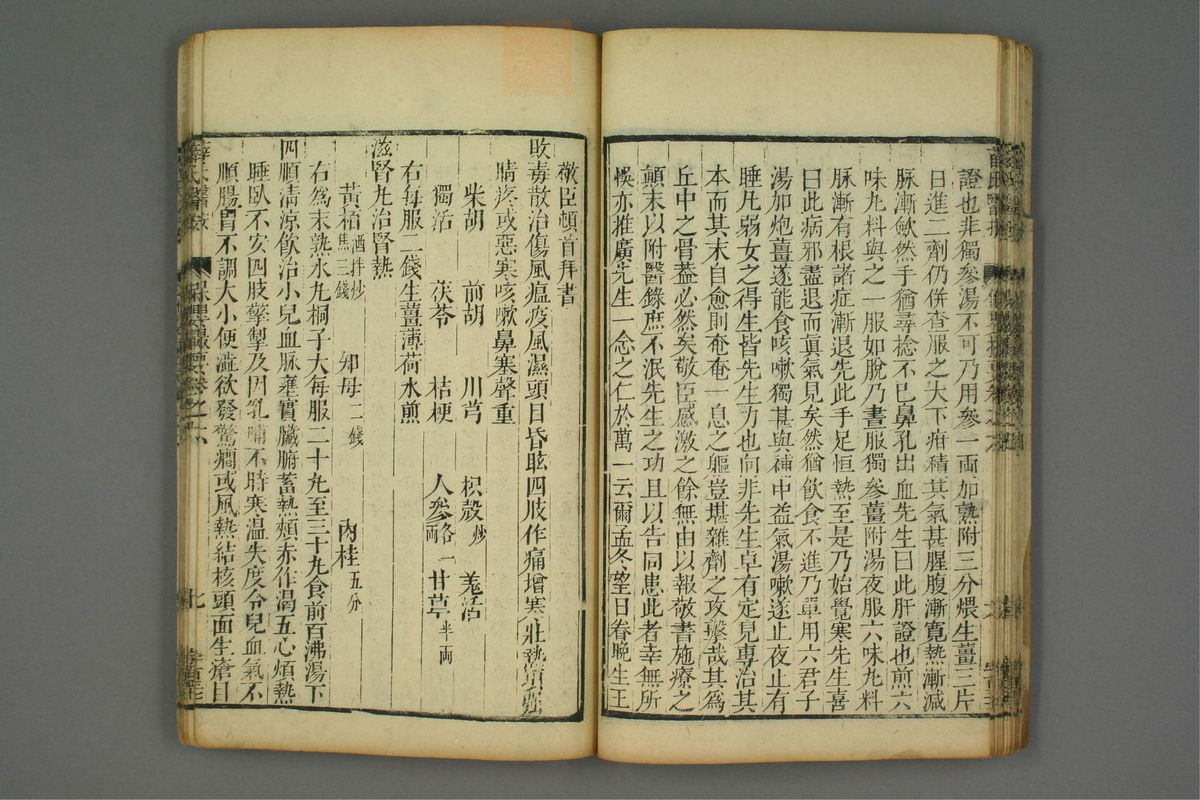 證也非獨參湯不可乃用參一兩加熟附三分煨生薑三片
日進二劑仍併查服之大下疳積其氣甚腥腹漸寬熱漸減
脉漸歛然手猶尋捻不已鼻孔出血先生曰此肝證也前六
味丸料與之一服如脫乃晝服獨參薑附湯夜服六味丸料
脉漸有根諸症漸退先此手足恒熱至是乃始覺寒先生喜
曰此病邪盡退而眞氣見矣然猶飲食不進乃單用六君子
湯加炮薑遂能食咳嗽獨甚與補中益氣湯嗽遂止夜止有
睡凡弱女之得生皆先生力也向非先生卓有定見專治其
本而其末自愈則奄奄一息之軀豈堪雜劑之攻擊哉其爲
丘中之骨葢必然矣敬臣感激之餘無由以報敬書施療之
顛末以附醫錄庶不泯先生之功且以告同患此者幸無所
悞亦推廣先生一念之仁於萬一云爾孟冬望日眷晚生王
敬臣頓首拜書
敗毒散治傷風瘟疫風濕頭目昏眩四肢作痛增寒壯熱項強
睛疼或惡寒咳嗽鼻塞聲重
柴胡 前胡 川芎 枳殻炒 羗活
獨活 茯苓 桔梗 人參各一兩 甘草半兩
右每服二錢生薑薄荷水煎
滋腎丸治腎熱
黃栢酒拌炒焦三錢 知母二錢 肉桂五分
右爲末熟水丸桐子大每服二十丸至三十丸食前百沸湯下
四順淸涼飲治小兒血脉壅實臟腑蓄熱頰赤作渴五心煩熱
睡臥不安四肢擎掣及因乳哺不時寒温失度令兒血氣不
順腸胃不調大小便澁欲發驚癇或風熱結核頭面生瘡目
薛氏醫按 保嬰撮要卷之六 七